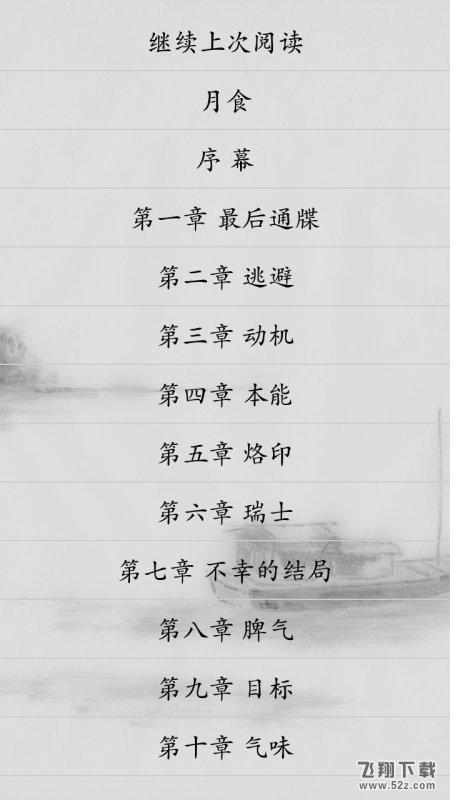 继续上次阅读
月食
序 幕
第一章 最后通牒
第二章 逃避
第三章 动机
第四章 本能
第五章 烙印
第六章 瑞士
第七章 不幸的结局
第八章 脾气
第九章 目标
第十章 气味
飞翔下载
www.52z.com